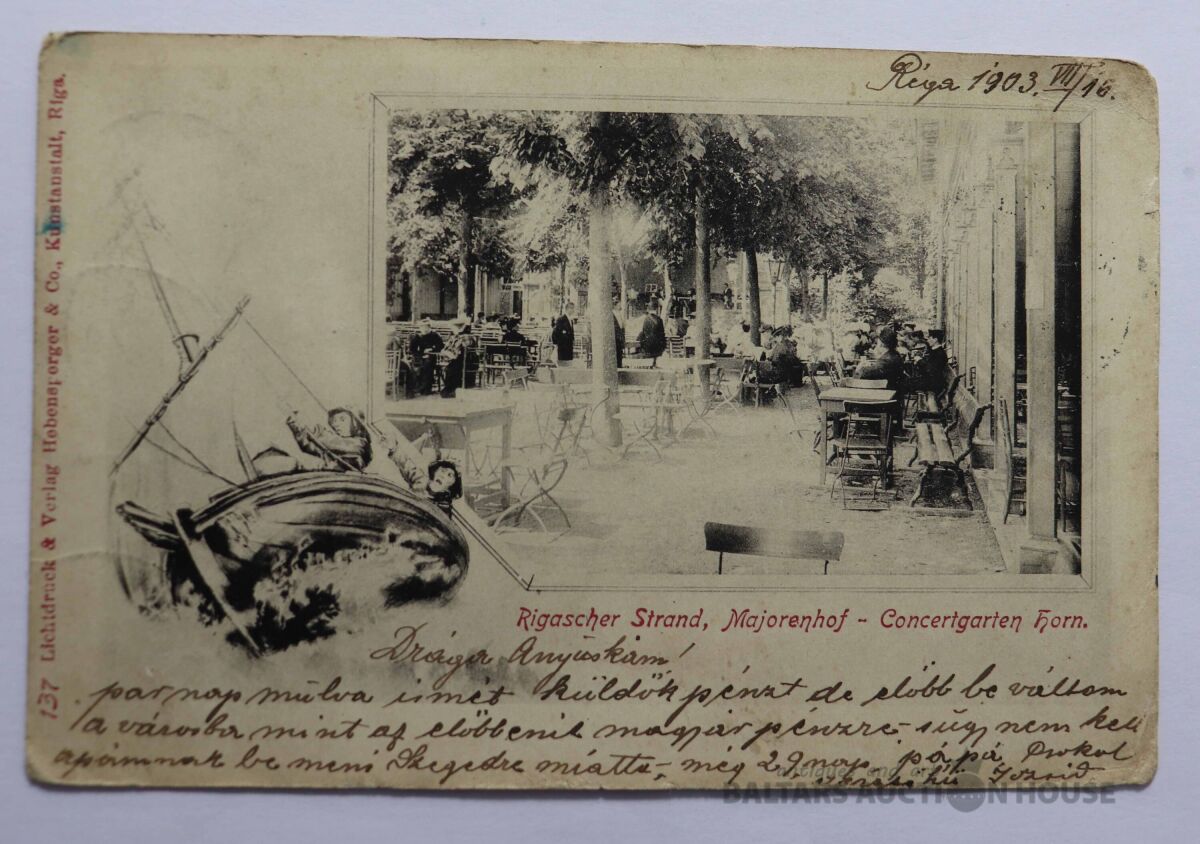 Riga 1903. VII/16.
137 Lichtdruck & Verlag Hebensperger & Co., Kunstanstalt, Riga.
Rigascher Strand, Majorenhof - Concertgarten Horn.
Drága Anyuskám!
par nap mulva ismét küldök pénzt de előbb be váltom
a városba mint az előbbenit magyar pénzre - úgy nem kell
apámnak be meni Szegedre miatta, - még 29 nap, pápá csokol
BALTARS AUCTION HOUSE